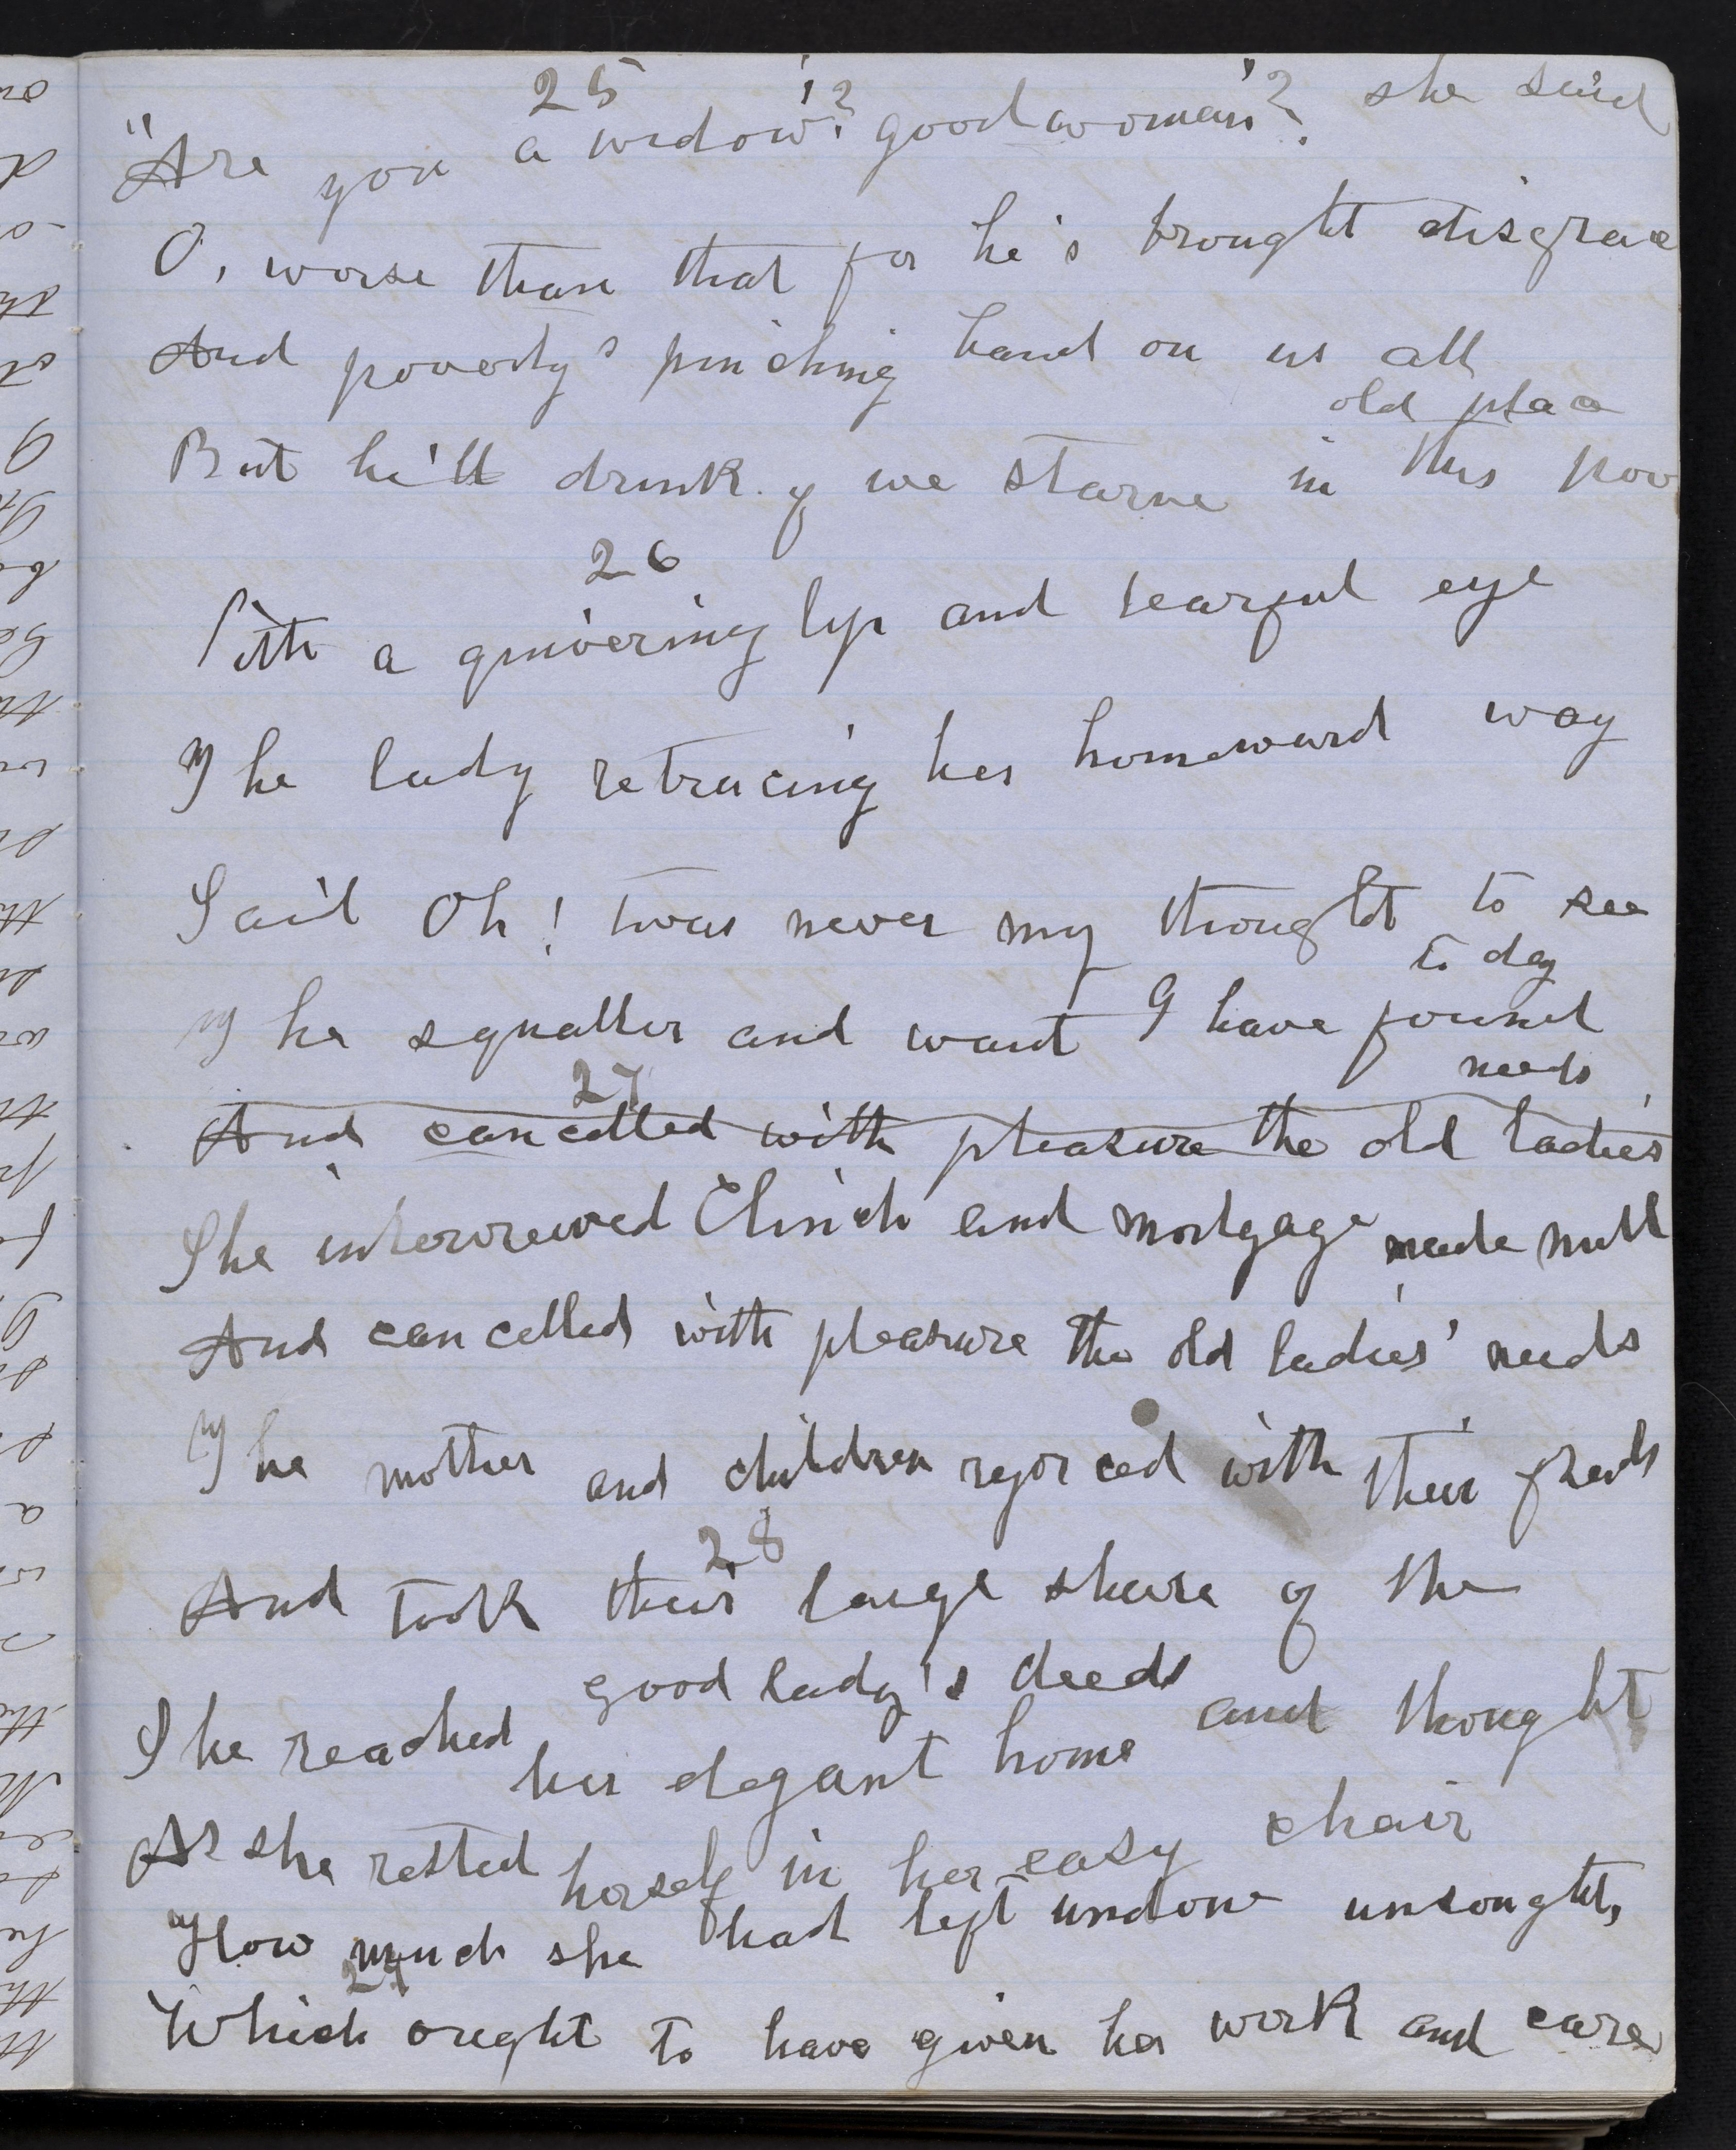 25
"Are you a widow'? good woman'? she said
O, worse than that for he's brought disgrace
And poverty's pinching hand on us all
old place
But he'll drink if we starve in this poor
26
With a quivering lip and tearful eye
The lady retracing her homeward way
Said Oh! twas never my thought to see
to day
The squaller and want I have found
27
needs
And cancelled with pleasure the old ladies'
She interviewed Clinch and mortgage made null
And cancelled with pleasure the old ladies' needs
The mother and children rejoiced with their
28
And took their large share of the
good lady's deeds
She reached her elegant home and thought
As she rested herself in her easy chair
How much she had left undone unsought,
29
Which ought to have given her work and care